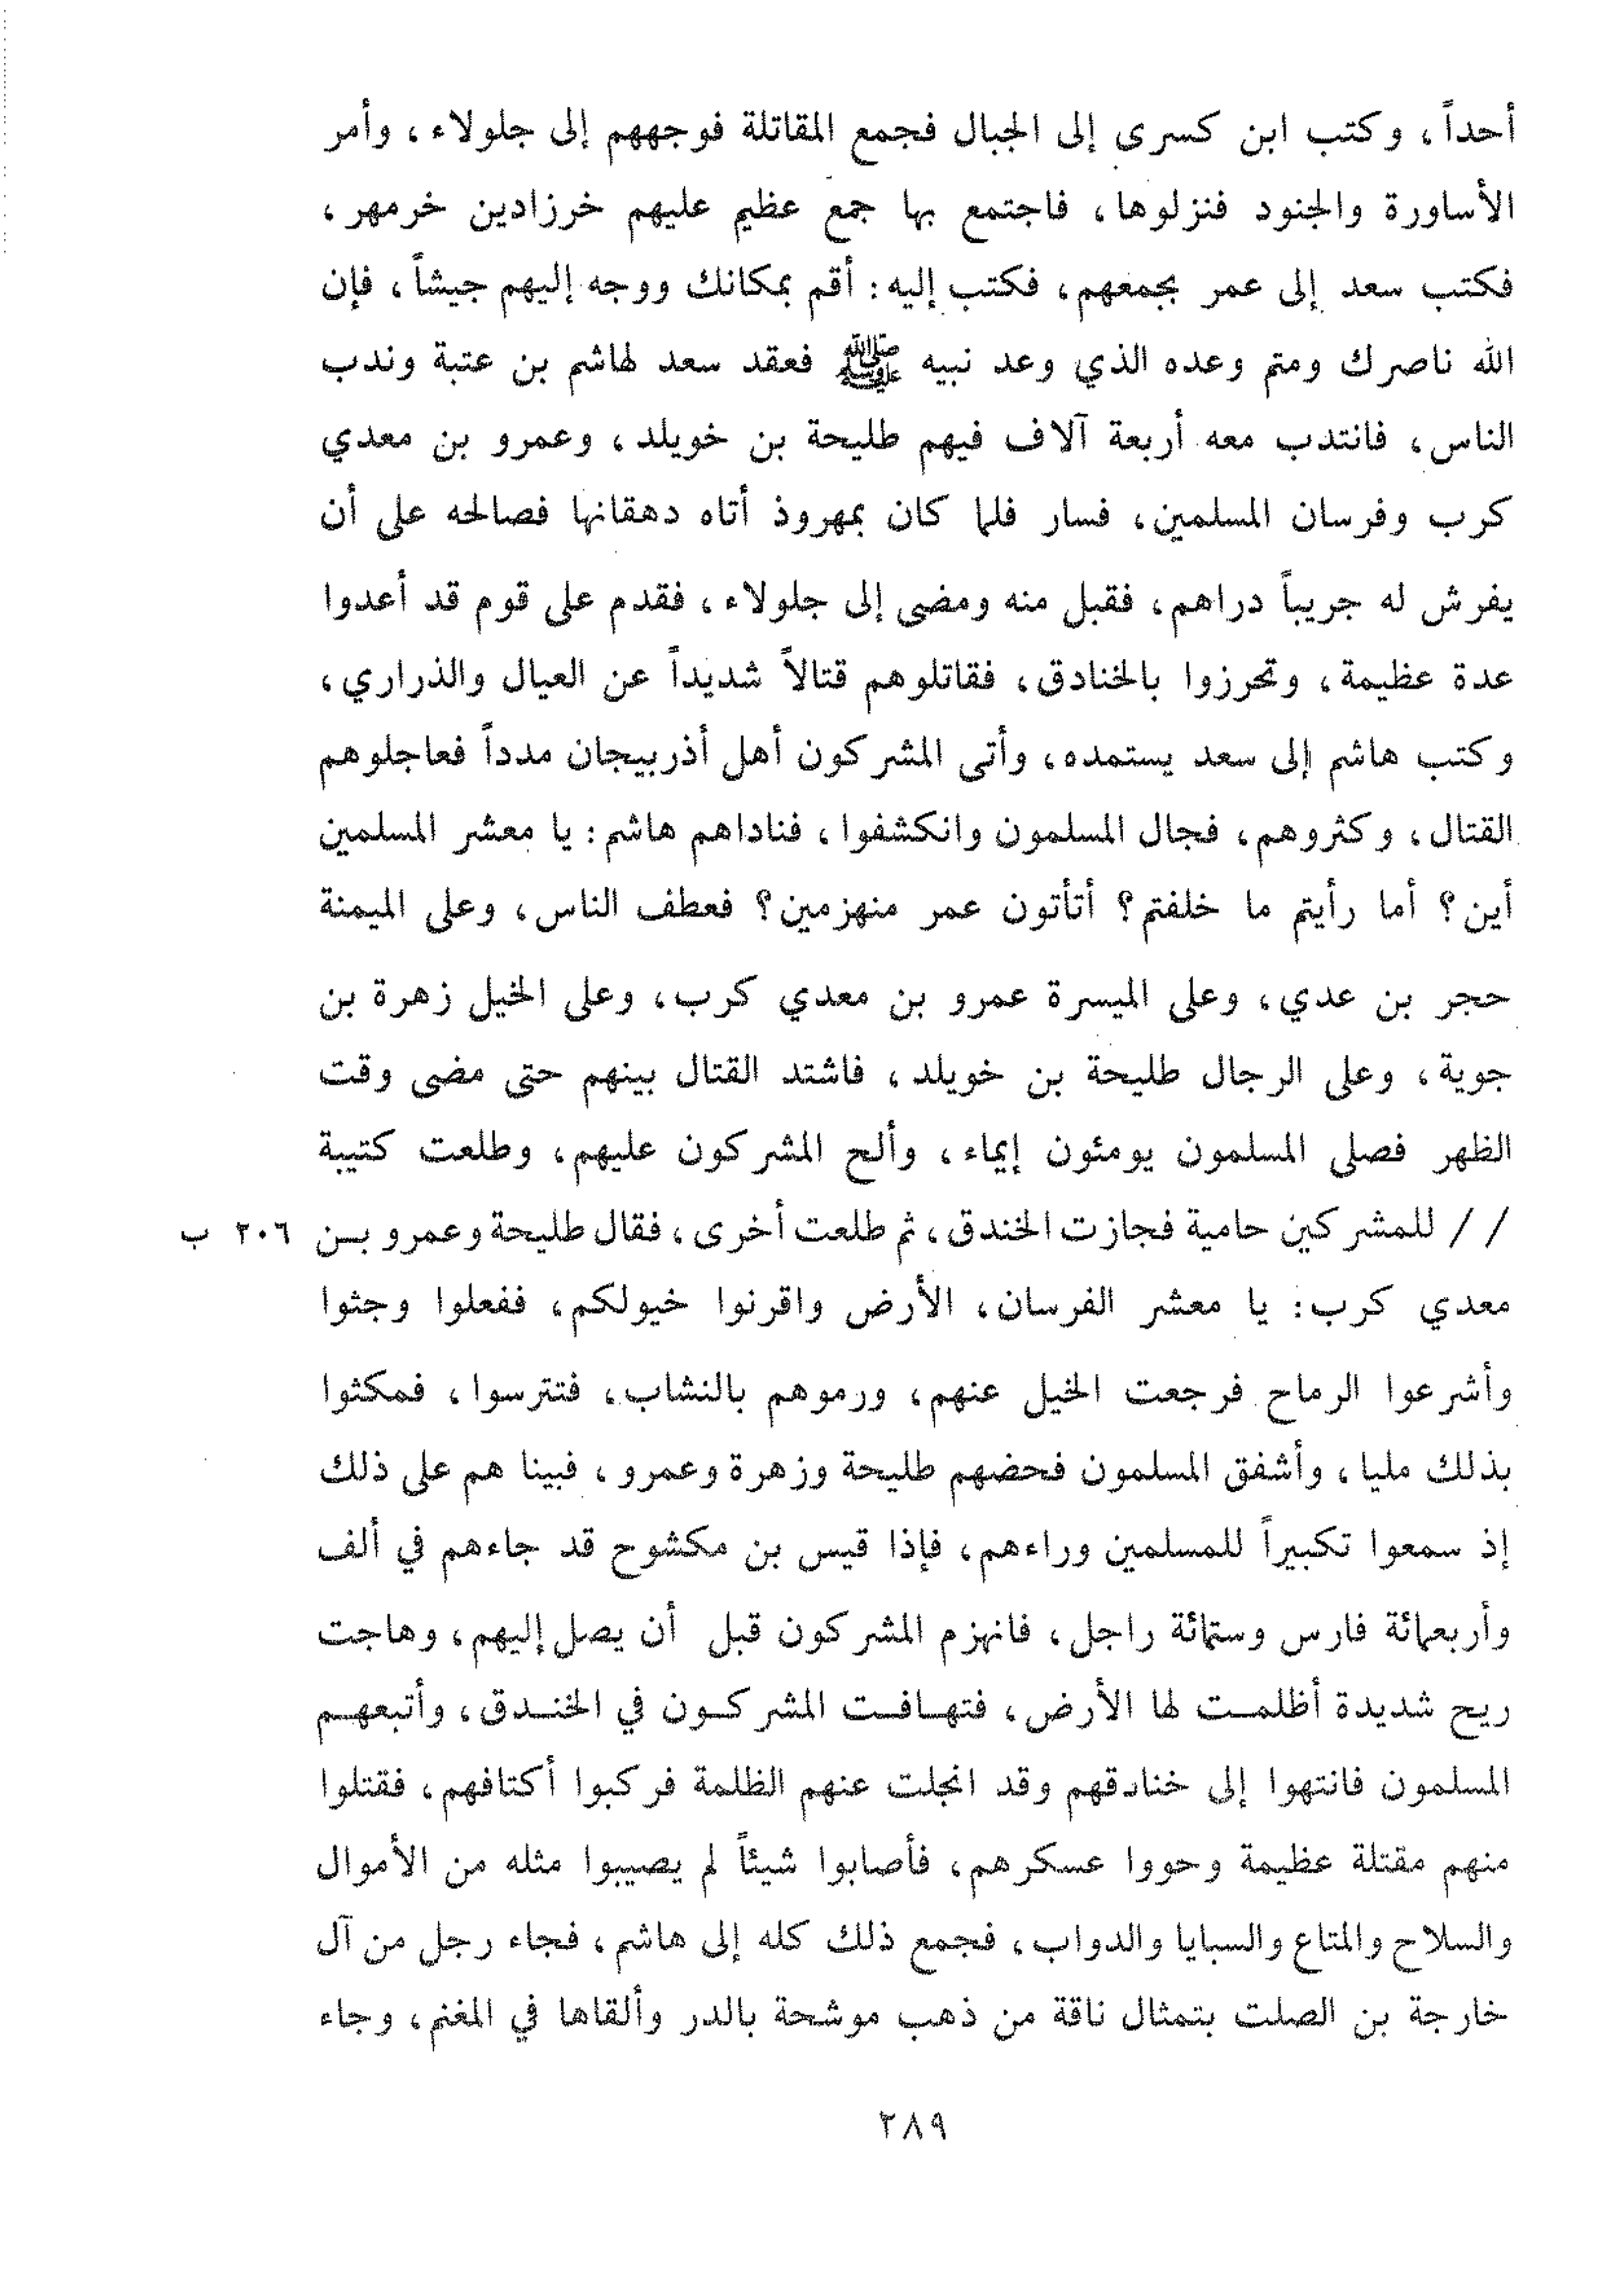 أحداً، وكتب ابن كسرى إلى الجبال فجمع المقاتلة فوجههم إلى جلولاء، وأمر
الأساورة والجنود فنزلوها، فاجتمع بها جمع عظيم عليهم خرزادين خرمهر،
فكتب سعد إلى عمر بجمعهم، فكتب إليه: أقم بمكانك ووجه إليهم جيشاً، فإن
الله ناصرك ومتم وعده الذي وعد نبيه ﷺ فعقد سعد لهاشم بن عتبة وندب
الناس، فانتدب معه أربعة آلاف فيهم طليحة بن خويلد، وعمرو بن معدي
كرب وفرسان المسلمين، فسار فلما كان بمهروذ أتاه دهقانها فصالحه على أن
يفرش له جريباً دراهم، فقبل منه ومضى إلى جلولاء، فقدم على قوم قد أعدوا
عدة عظيمة، وتحرزوا بالخنادق، فقاتلوهم قتالاً شديداً عن العيال والذراري،
وكتب هاشم إلى سعد يستمده، وأتى المشركون أهل أذربيجان مدداً فعاجلوهم
القتال، وكثروهم، فجال المسلمون وانكشفوا، فناداهم هاشم: يا معشر المسلمين
أين؟ أما رأيتم ما خلفتم؟ أتأتون عمر منهزمين؟ فعطف الناس، وعلى الميمنة
حجر بن عدي، وعلى الميسرة عمرو بن معدي كرب، وعلى الخيل زهرة بن
جوية، وعلى الرجال طليحة بن خويلد، فاشتد القتال بينهم حتى مضى وقت
الظهر فصلى المسلمون يومئون إيماء، وألح المشركون عليهم، وطلعت كتيبة
// للمشركين حامية فجازت الخندق، ثم طلعت أخرى، فقال طليحة وعمرو بـن ٢٠٦ ب
معدي كرب: يا معشر الفرسان، الأرض واقرنوا خيولكم، ففعلوا وجثوا
وأشرعوا الرماح فرجعت الخيل عنهم، ورموهم بالنشاب، فتترسوا، فمكثوا
بذلك مليا، وأشفق المسلمون فحضهم طليحة وزهرة وعمرو، فبينا هم على ذلك
إذ سمعوا تكبيراً للمسلمين وراءهم، فإذا قيس بن مكشوح قد جاءهم في ألف
وأربعمائة فارس وستمائة راجل، فانهزم المشركون قبل أن يصل إليهم، وهاجت
ريح شديدة أظلمـت لها الأرض، فتهـافـت المشركـون في الخنـدق، وأتبعهـم
المسلمون فانتهوا إلى خنادقهم وقد انجلت عنهم الظلمة فركبوا أكتافهم، فقتلوا
منهم مقتلة عظيمة وحووا عسكرهم، فأصابوا شيئاً لم يصيبوا مثله من الأموال
والسلاح والمتاع والسبايا والدواب، فجمع ذلك كله إلى هاشم، فجاء رجل من آل
خارجة بن الصلت بتمثال ناقة من ذهب موشحة بالدر وألقاها في المغنم، وجاء
٢٨٩